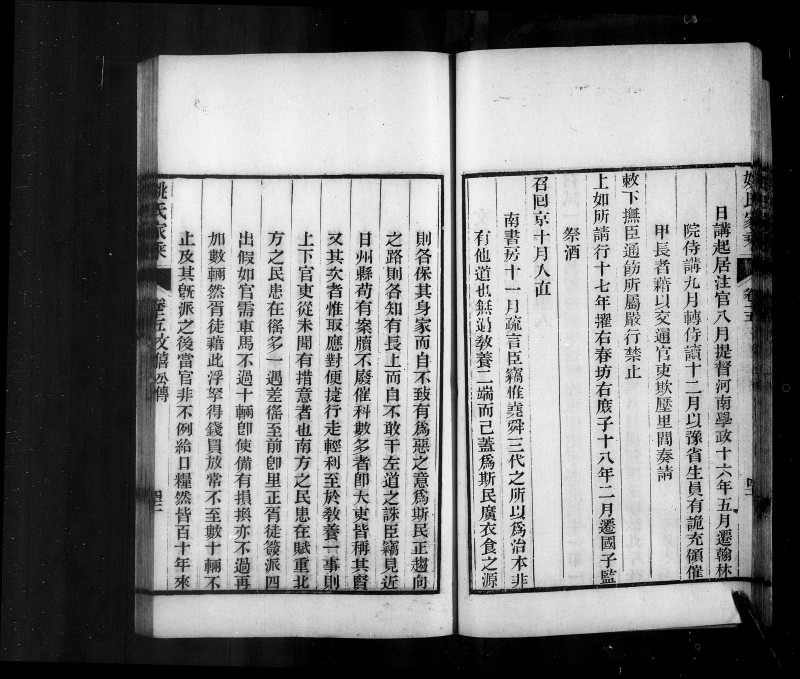 姚氏家乘 卷五
日講起居注官八月提督河南學政十六年五月遷翰林
院侍講九月轉侍讀十二月以豫省生員有詭充領催
甲長者藉以交通官吏欺壓里閭奏請
敕下撫臣通飭所屬嚴行禁止
上如所請行十七年擢右春坊右庶子十八年二月遷國子監
祭酒
召回京十月入直
南書房十一月疏言臣竊惟堯舜三代之所以為治本非
有他道也無過教養二端而已蓋為斯民廣衣食之源
則各保其身家而自不致有為惡之意為斯民正趨向
之路則各知有長上而自不敢干左道之誅臣竊見近
日州縣苟有案牘不廢催科數多者卽大吏皆稱其賢
又其次者惟取應對便捷行走輕利至於教養一事則
上下官吏從未聞有措意者也南方之民患在賦重北
方之民患在徭多一遇差徭至前卽里正胥徒簽派四
出假如官需車馬不過十輛卽使備有損換亦不過再
加數輛然胥徒藉此浮拏得錢買放常不至數十輛不
止及其旣派之後當官非不例給口糧然皆百十年來
姚氏家乘 卷五文僖公傳